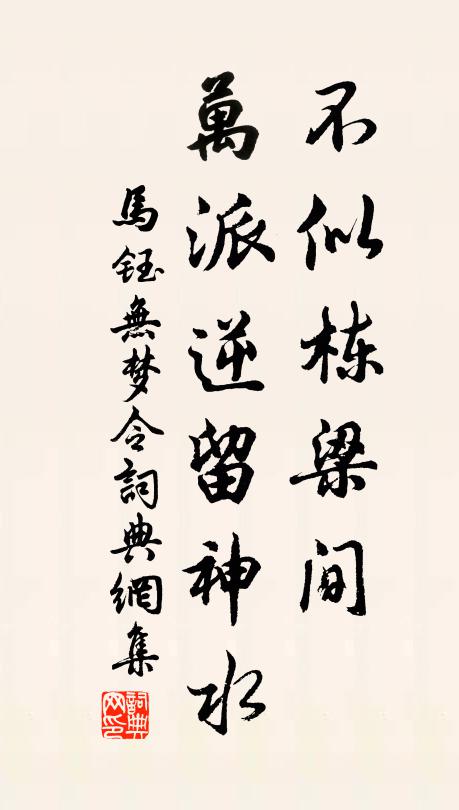 不似栋梁间
萬派逆留神水
馬鈺無梦令詞典網集
詞典网印